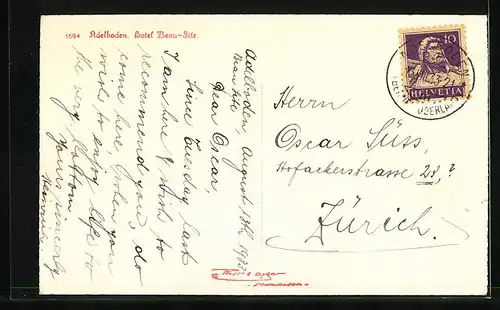 1594 Adelboden. Hotel Beau-Site.
Adelboden, August 18th 1933
Beau Site
Dear Oscar,
Since Tuesday last
I am here & wish to
recommend you, do
come here, when you
wish to enjoy life to
the very bottom
Yours sincerely
Heinrich
10
HELVETIA
Herrn
Oscar Süss,
Hofackerstrasse 28,?
Zürich.